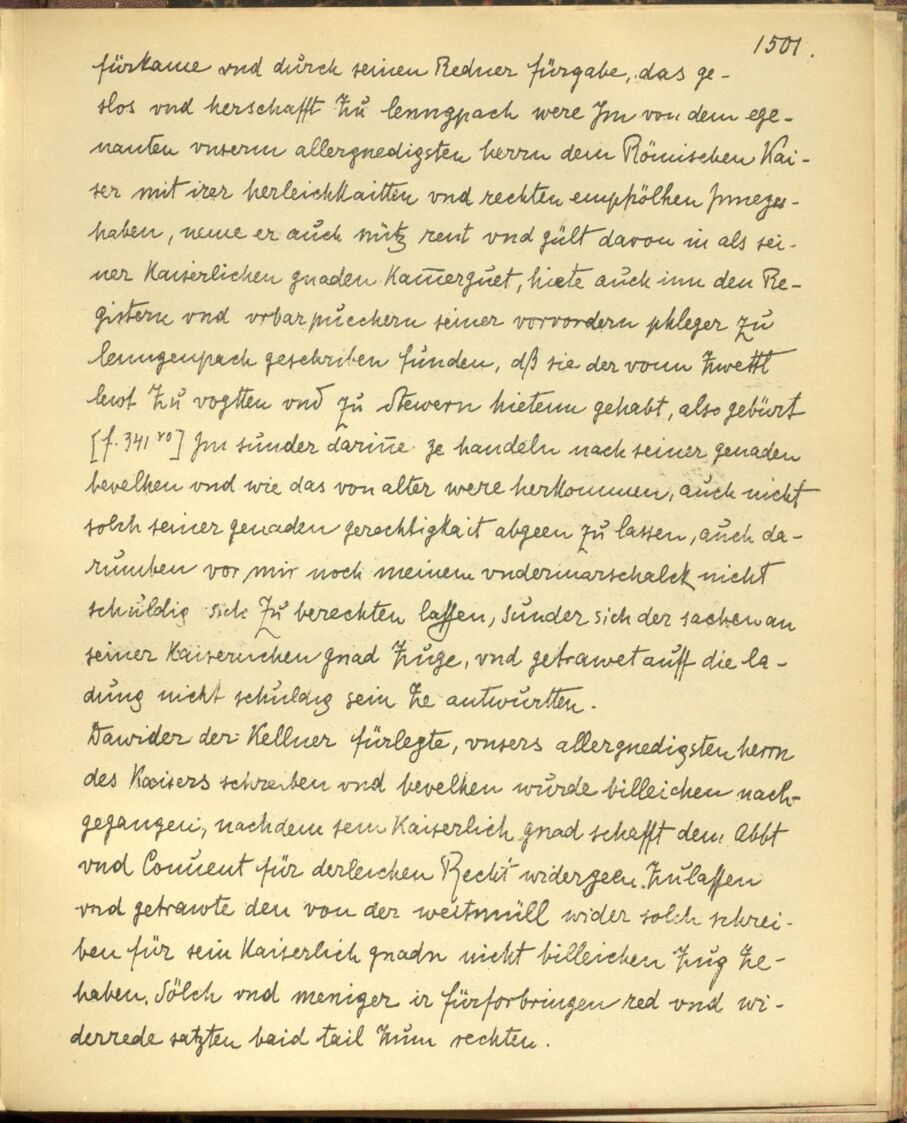 1501.
fürkame vnd durch seinen Redner fürgabe, das ge-
slos vnd herschafft zu lenngpach were Jm von dem ege-
nanten vnserm allergnedigsten herrn dem Römischen Kai-
ser mit irer herleichkaitten vnd rechten empholhen Jnneze-
haben, neme er auch nütz rent vnd gült davon in als sei-
ner Kaiserlichen gnaden Kam̄erguet, hiete auch inn den Re-
gistern vnd vrbarpuechern seiner vorvordern phleger zu
lenngenpach geschriben funden, dß sie der vonn Zwettl
lewt zu vogtten vnd zu Stewern hietenn gehabt, also gebürt
[f. 341 ro] Jm sunder darin̄e ze handeln nach seiner genaden
bevelhen vnd wie das von alter were herkommen, auch nicht
solch seiner genaden gerechtigkait abgeen zu lassen, auch da-
rumben vor mir noch meinem vndermarschalck nicht
schuldig sich zu berechten lassen, Sunder sich der sachen an
seiner Kaiserlichen gnad zuge, vnd getrawet auff die la-
dung nicht schuldig sein ze antwurtten.
Dawider der Kellner fürlegte, vnsers allergnedigsten herrn
des Kaisers schreiben vnd bevelhen wurde billeichen nach-
gegangen, nachdem sein Kaiserlich gnad schafft dem Abbt
vnd Conuent für derleichen Recht widergeen zulassen
vnd getrawte den von der weitmüll wider solch schrei-
ben für sein Kaiserlich gnadn nicht billeichen zug ze-
haben. Sölch vnd meniger ir fürforbringen red vnd wi-
derrede satzten baid tail zum rechten.